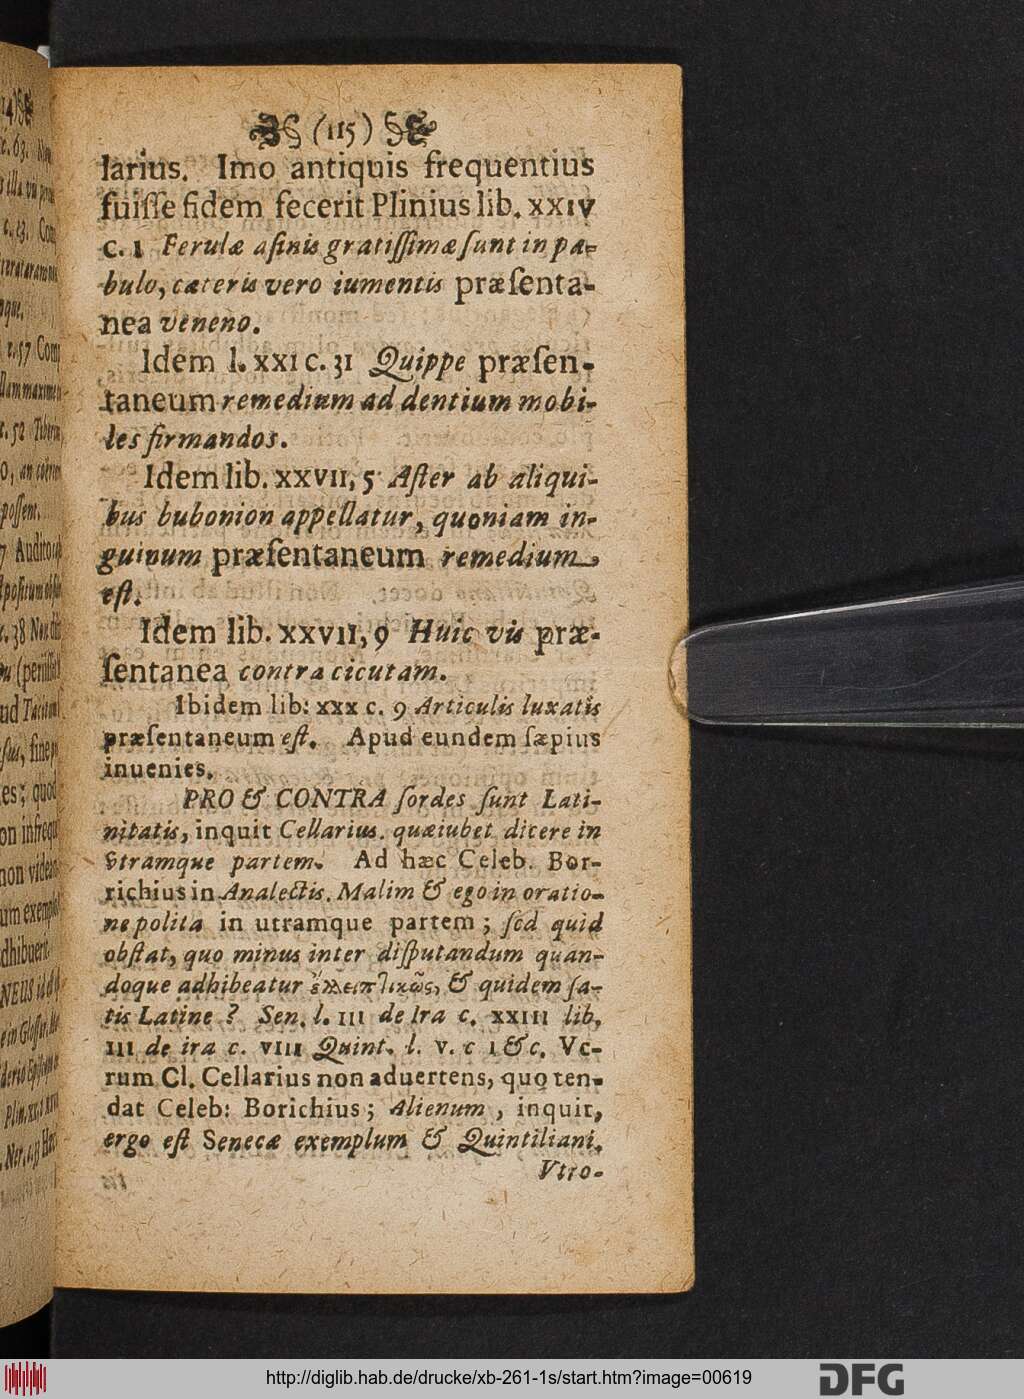 (115)
larius. Imo antiquis frequentius
fuiſſe fidem fecerit Plinius lib. XXIV
c. 1 Ferulæ aſinis gratiſſimæ ſunt in pa-
bulo, cæteris vero iumentis præſenta-
nea veneno.
Idem l. XXI c. 31 Quippe præſen-
taneum remedium ad dentium mobi-
les firmandos.
Idem lib. XXVII, 5 Aſter ab aliqui-
bus bubonion appellatur, quoniam in-
guinum præſentaneum remedium
eſt.
Idem lib. XXVII, 9 Huic vis præ-
ſentanea contra cicutam.
Ibidem lib: XXX c. 9 Articulis luxatis
præſentaneum eſt. Apud eundem ſæpius
inuenies.
PRO & CONTRA ſordes ſunt Lati-
nitatis, inquit Cellarius. quæ iubet dicere in
vtramque partem. Ad hæc Celeb. Bor-
richius in Analectis. Malim & ego in oratio-
ne polita in utramque partem; ſed quid
obſtat, quo minus inter diſputandum quan-
doque adhibeatur ἐλλειπτικῶς, & quidem ſa-
tis Latine? Sen. l. III de Ira c. XXIII lib.
III de ira c. VIII Quint. l. V. c 1 &c. Ve-
rum Cl. Cellarius non aduertens, quo ten-
dat Celeb: Borichius; Alienum, inquit,
ergo eſt Senecæ exemplum & Quintiliani.
Vtro-
http://diglib.hab.de/drucke/xb-261-1s/start.htm?image=00619
DFG